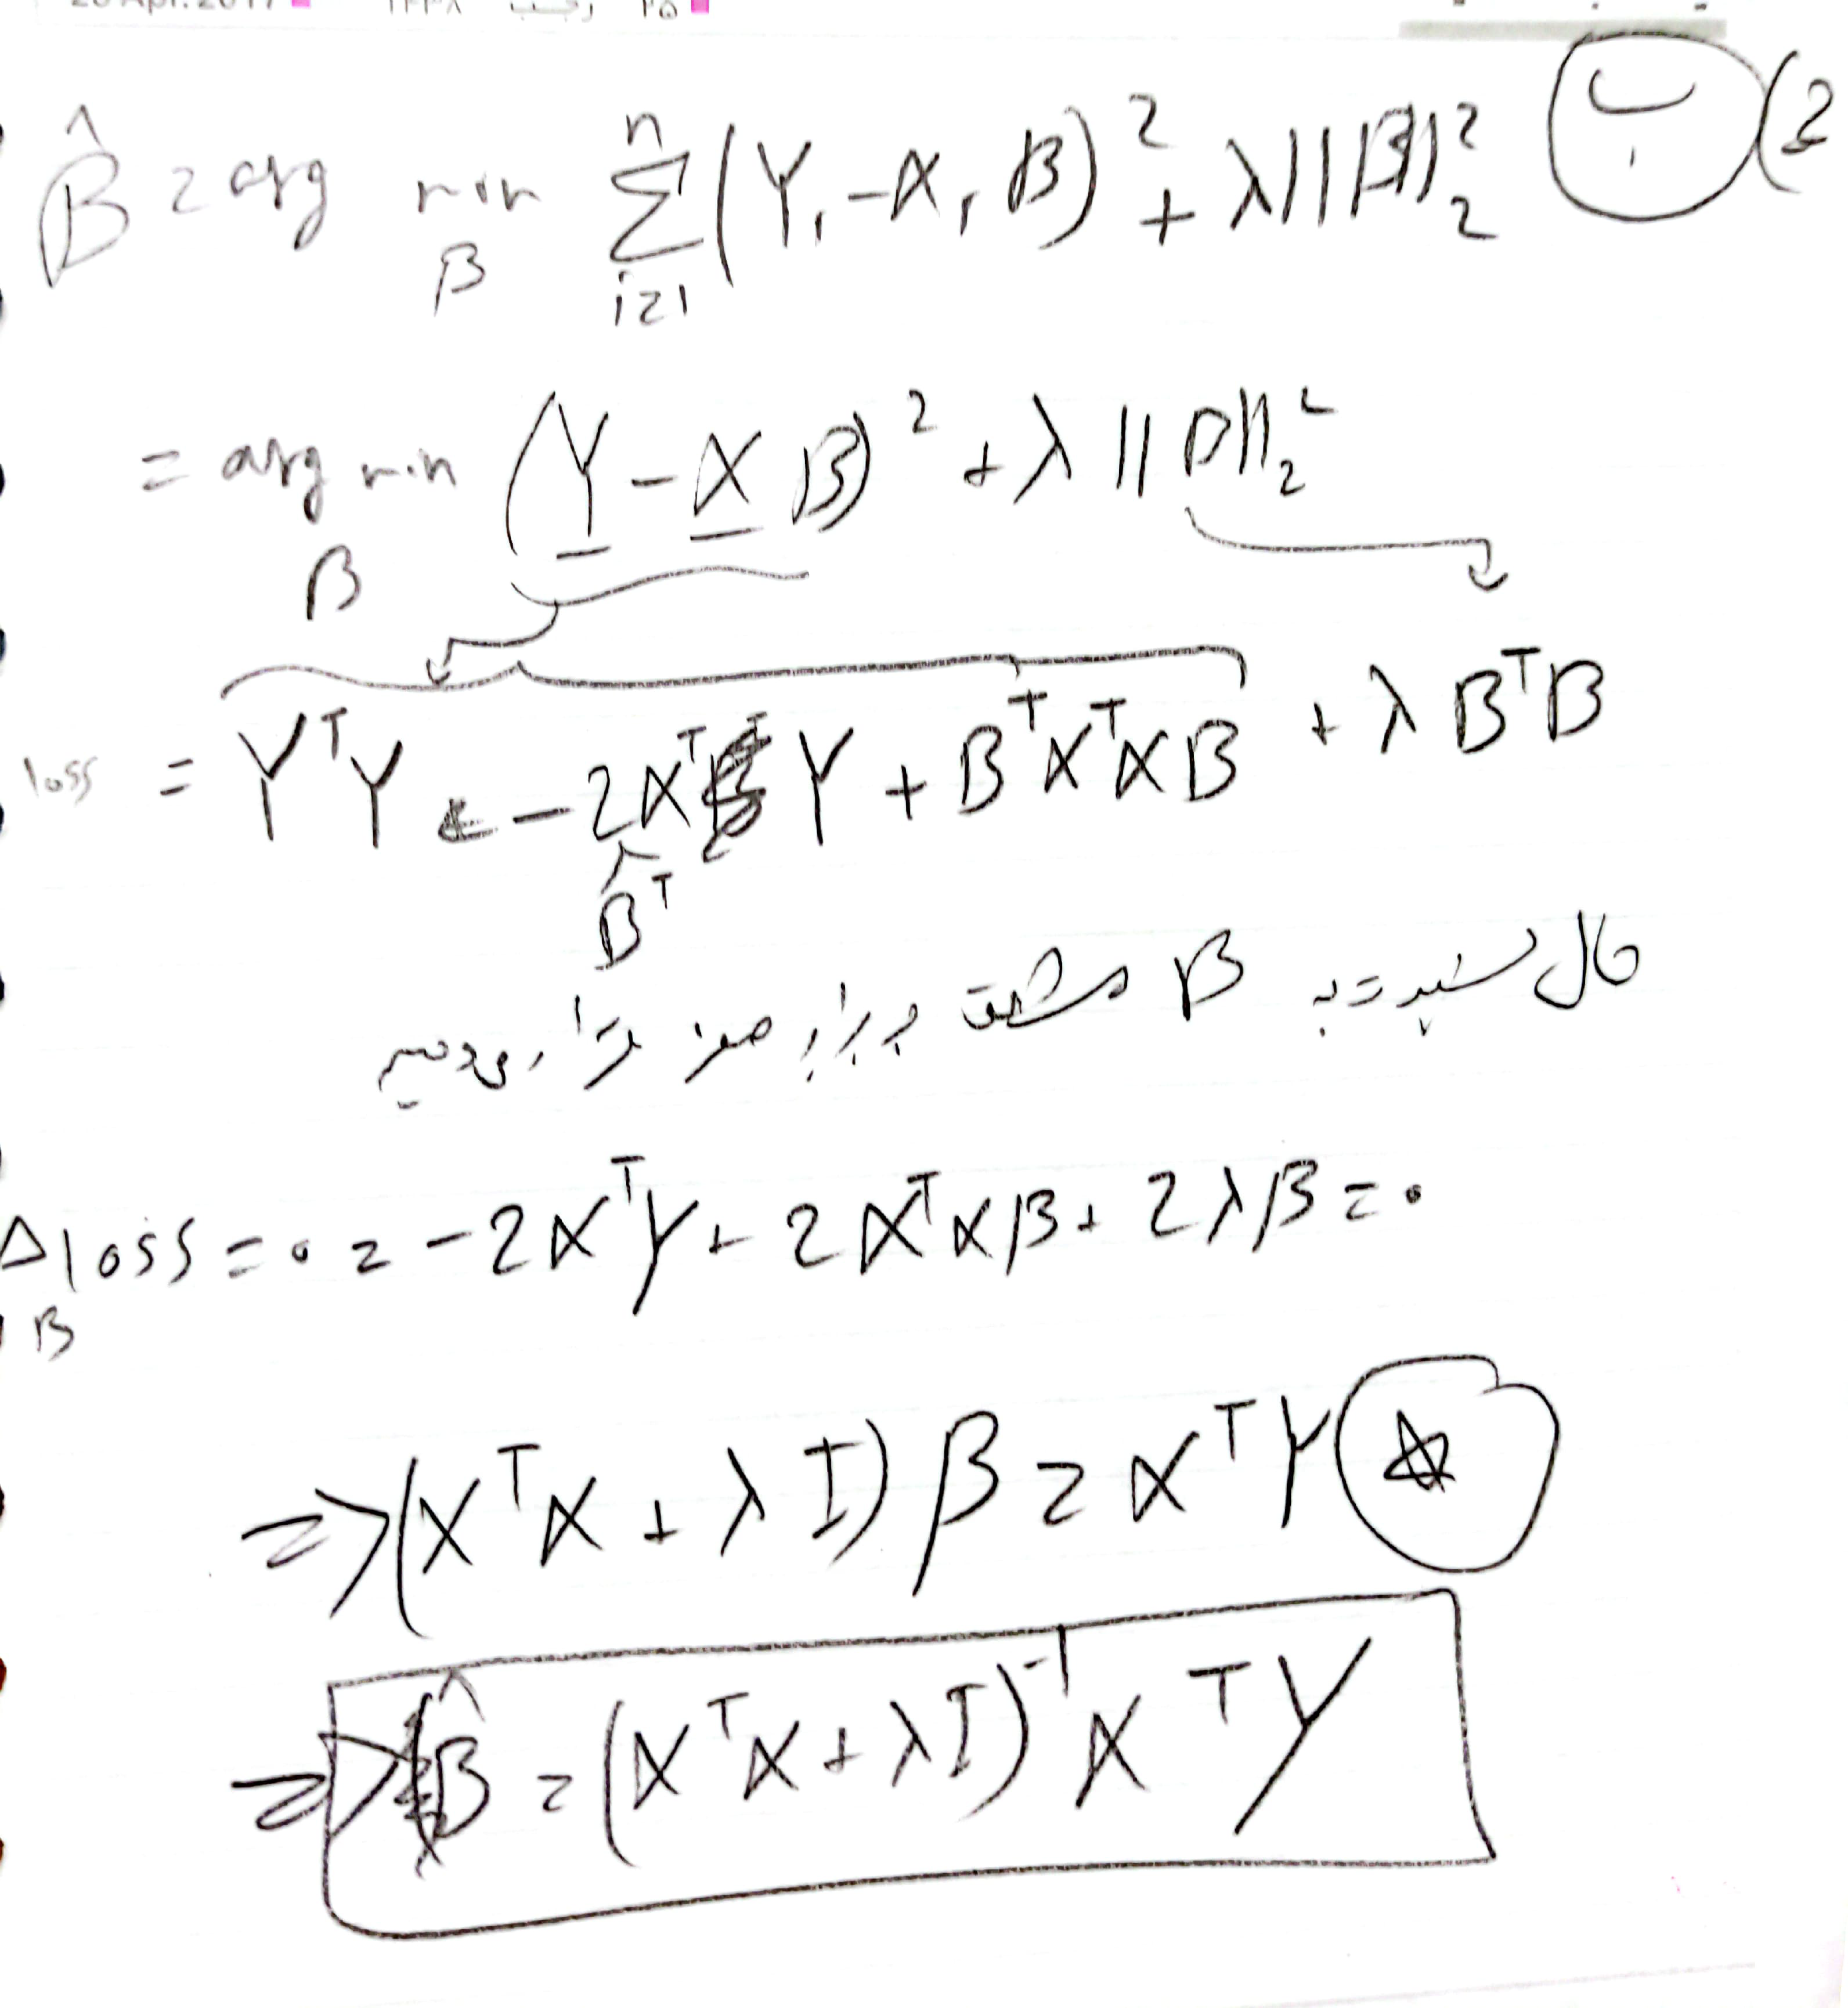 2) ب
β̂ = arg min_β Σ_{i=1}^{n} (Y_i - X_i β)² + λ||β||₂²
= arg min_β (Y - X β)² + λ||β||₂²
loss = YᵀY - 2 βᵀ Xᵀ Y + βᵀXᵀXβ + λ BᵀB
حال نسبت به β مشتق برابر صفر قرار می‌دهیم
Δ_B loss = 0 = -2XᵀY + 2XᵀXβ + 2λβ = 0
⇒ (XᵀX + λI) β = XᵀY ☆
⇒ β̂ = (XᵀX + λI)⁻¹ XᵀY